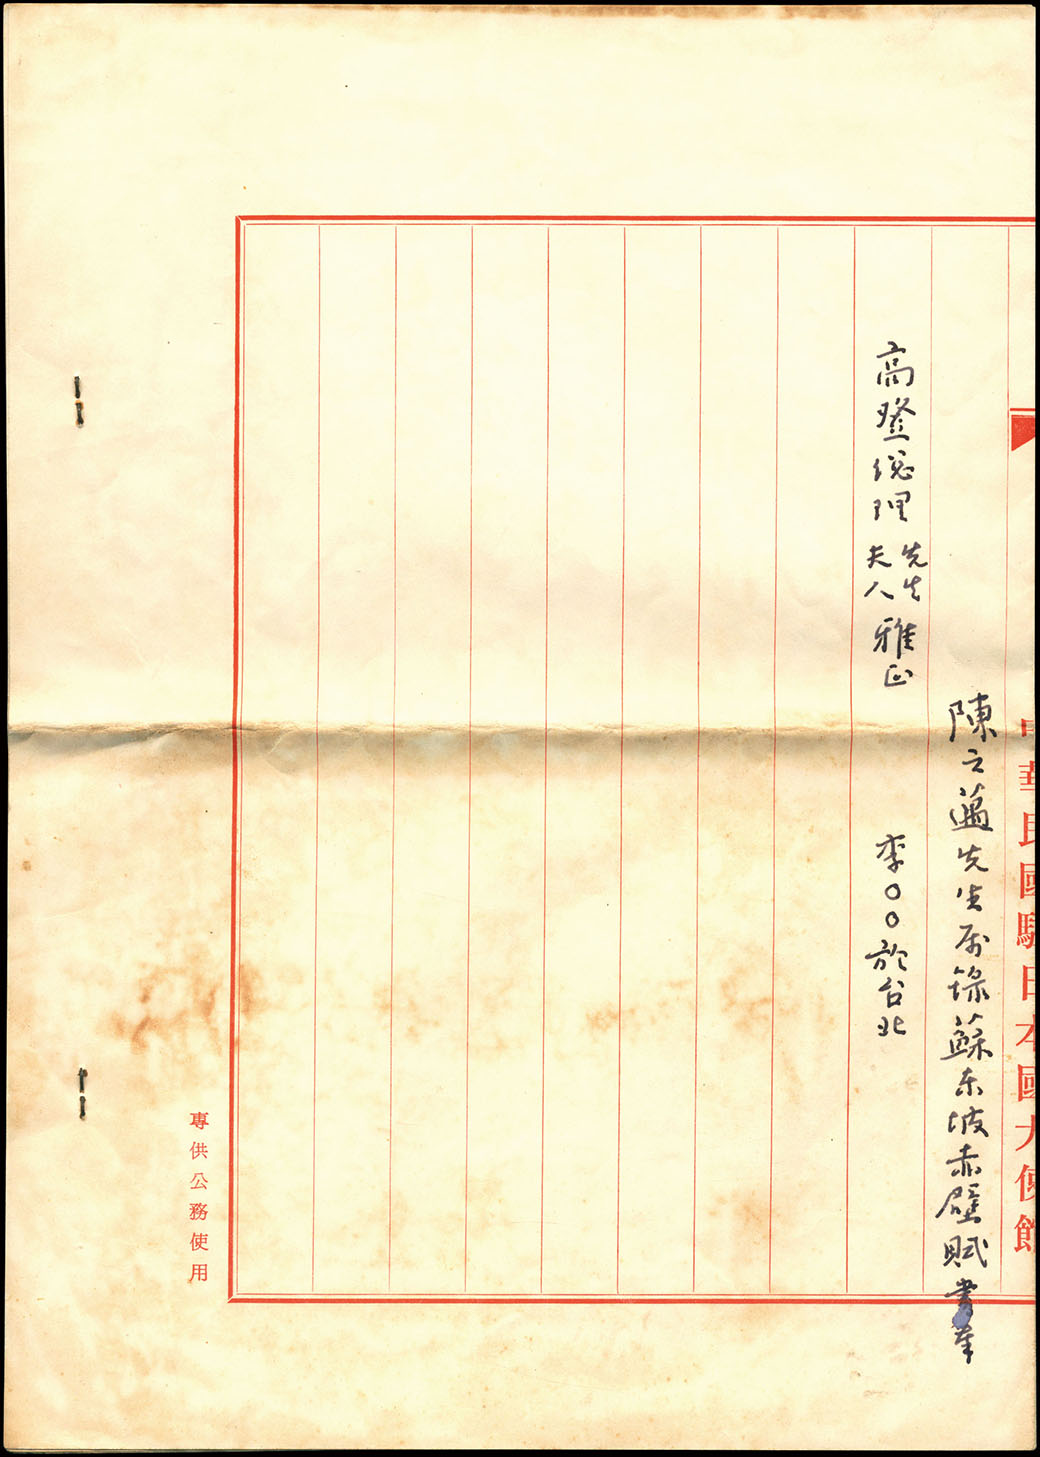 中華民國駐日本國大使館
陳之邁先生屬錄蘇東坡赤壁賦
高登總理先生夫人雅正
李〇〇於台北
專供公務使用